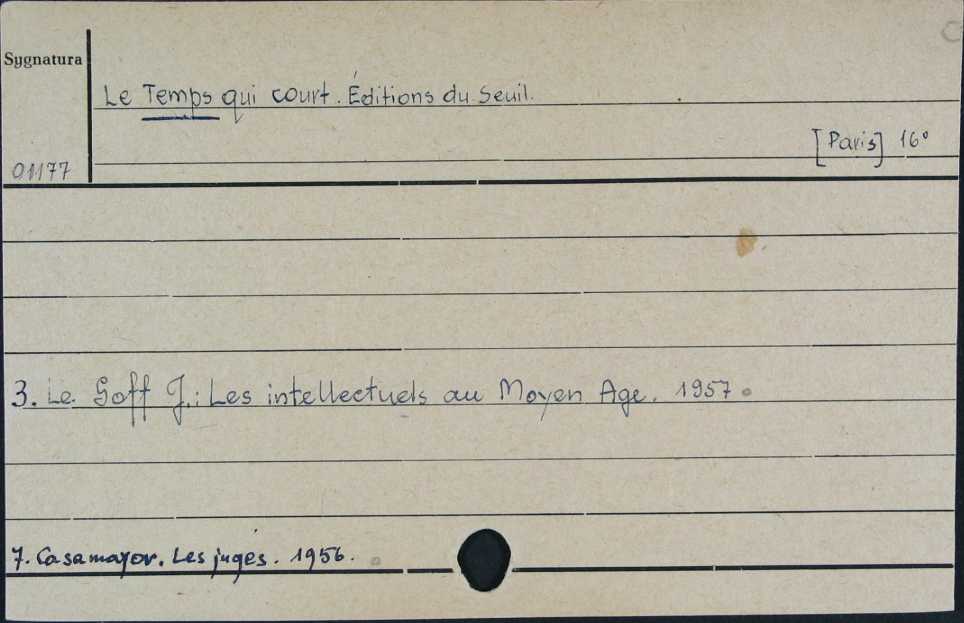 Sygnatura
Le Temps qui court. Éditions du Seuil.
[Paris] 16°
01177
3. Le Goff J.: Les intellectuels au Moyen Age. 1957.
7. Casamayor. Les juges. 1956.